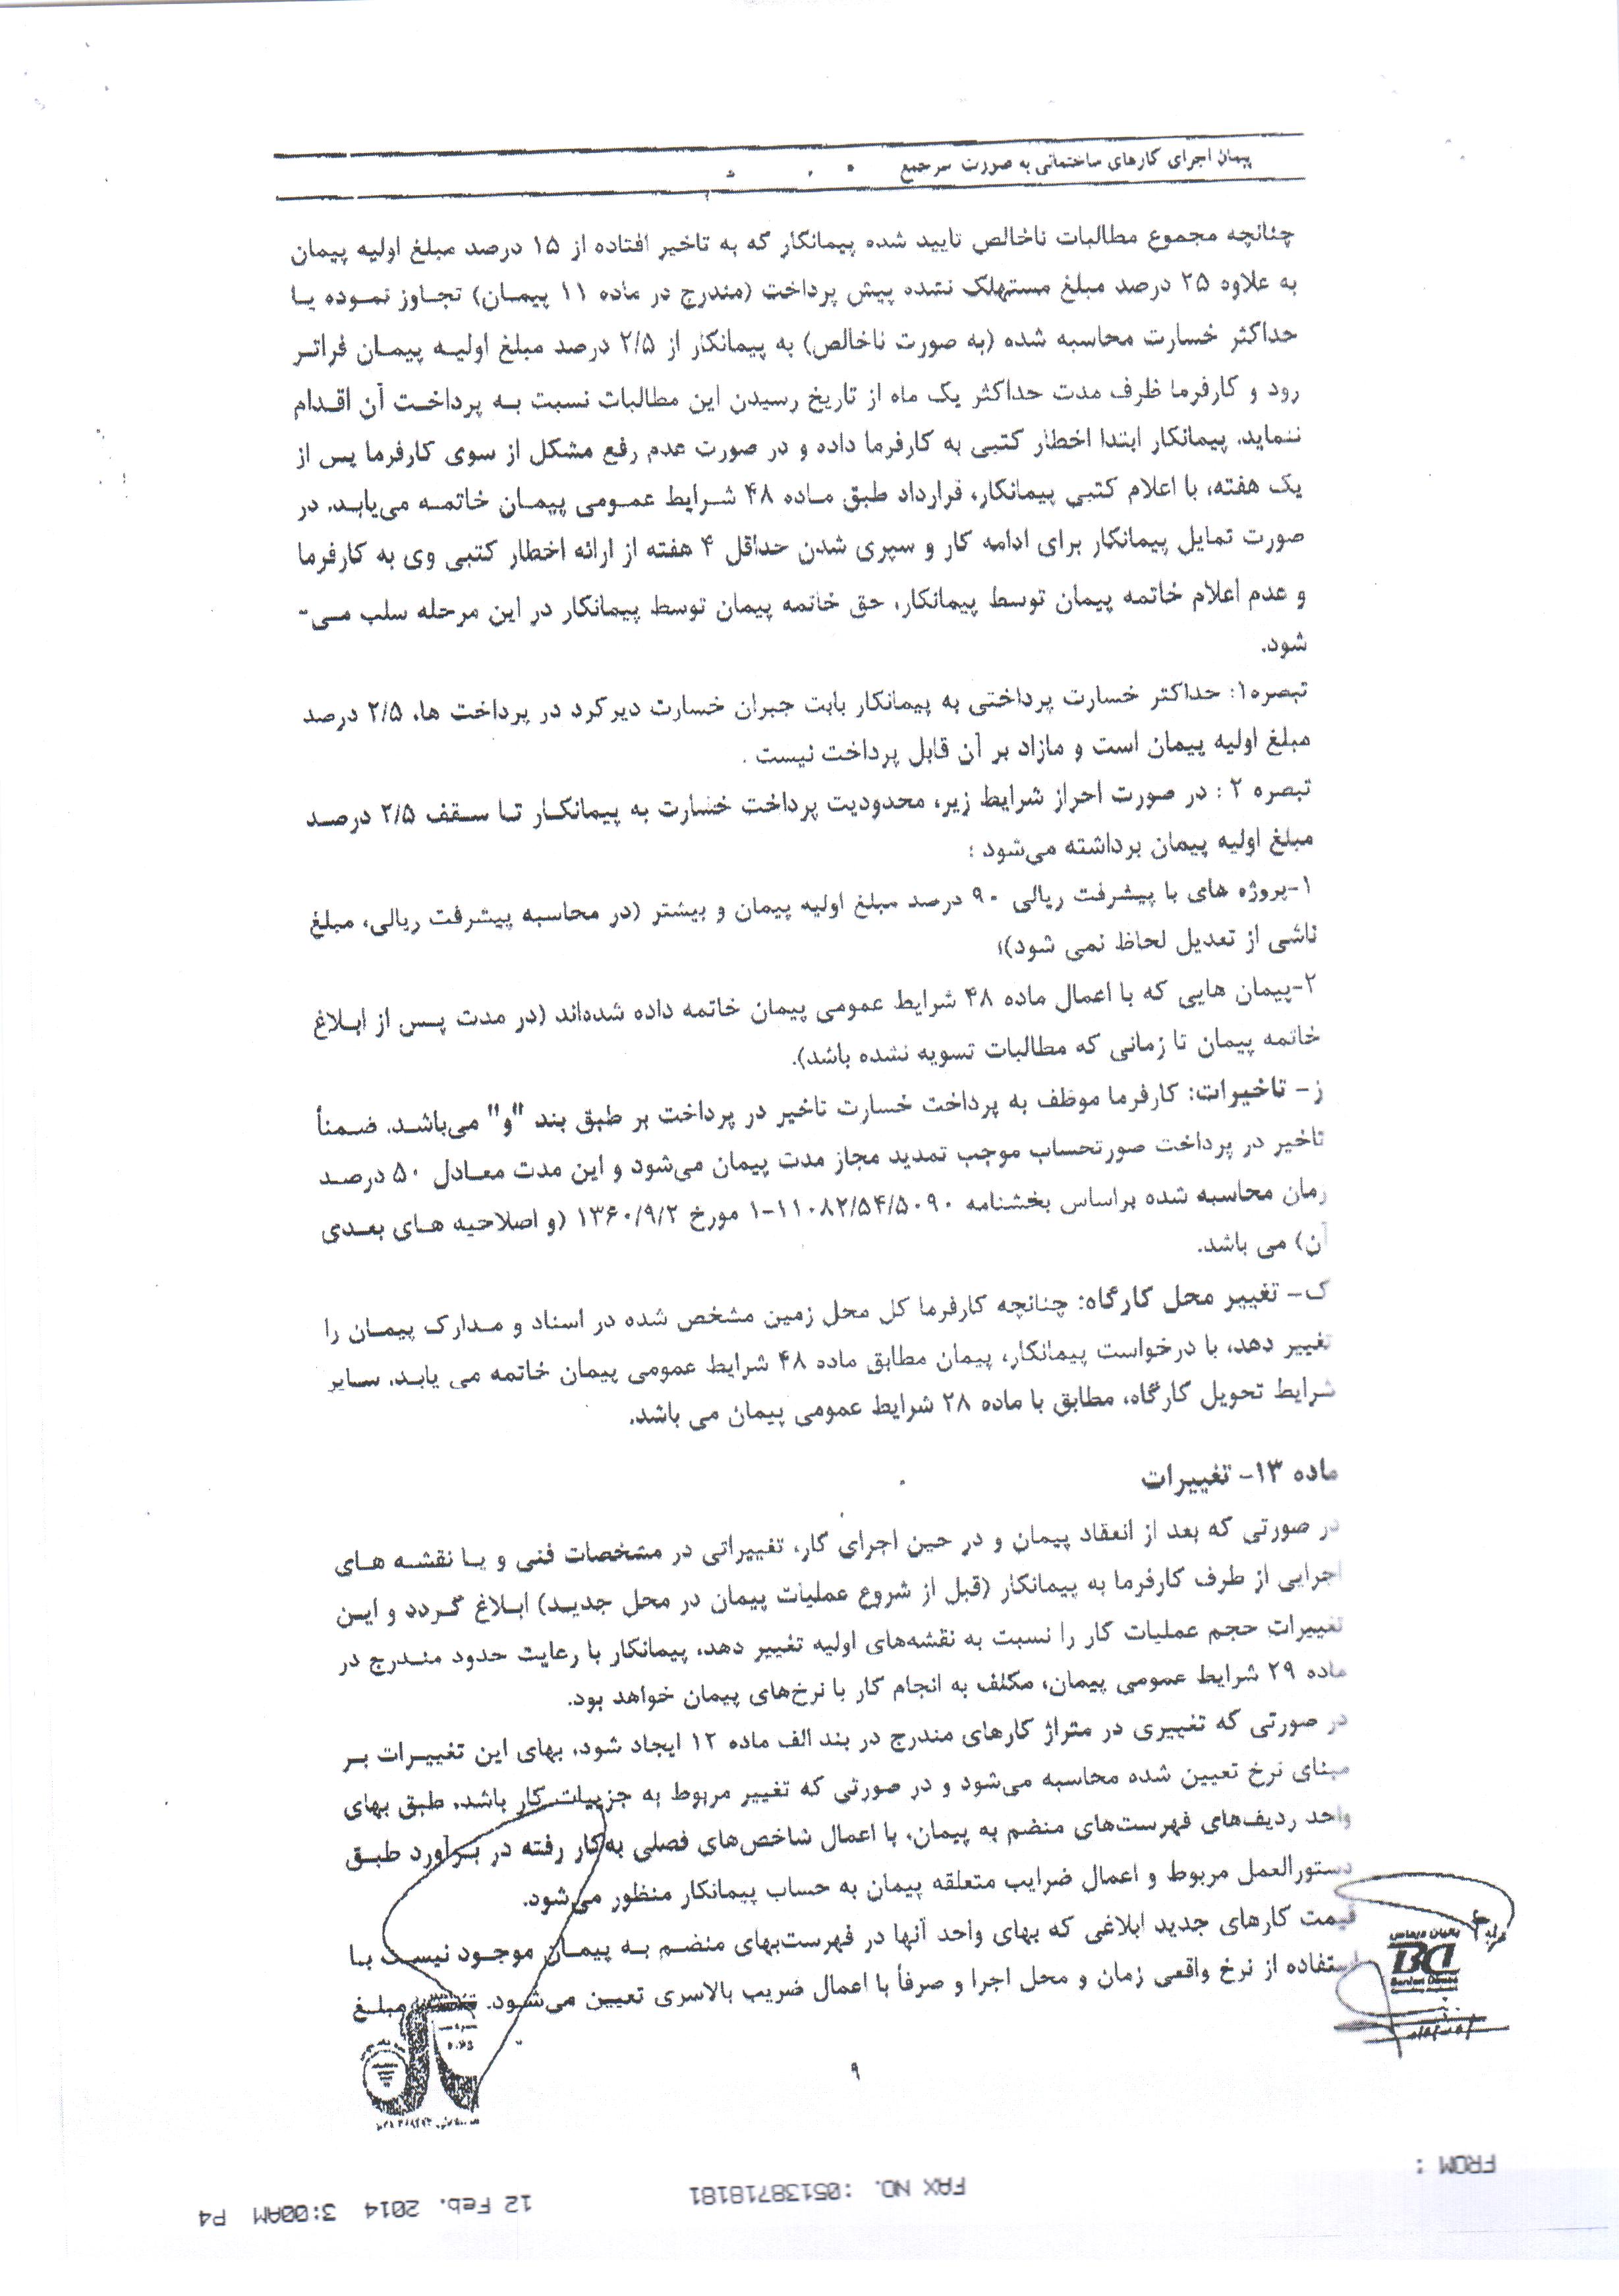 پیمان اجرای کارهای ساختمانی به صورت سرجمع
چنانچه مجموع مطالبات ناخالص تایید شده پیمانکار که به تاخیر افتاده از ۱۵ درصد مبلغ اولیه پیمان
به علاوه ۲۵ درصد مبلغ مستهلک نشده پیش پرداخت (مندرج در ماده ۱۱ پیمان) تجاوز نموده یا
حداکثر خسارت محاسبه شده (به صورت ناخالص) به پیمانکار از ۲/۵ درصد مبلغ اولیه پیمان فراتر
رود و کارفرما ظرف مدت حداکثر یک ماه از تاریخ رسیدن این مطالبات نسبت به پرداخت آن اقدام
ننماید، پیمانکار ابتدا اخطار کتبی به کارفرما داده و در صورت عدم رفع مشکل از سوی کارفرما پس از
یک هفته، با اعلام کتبی پیمانکار، قرارداد طبق ماده ۴۸ شرایط عمومی پیمان خاتمه می‌یابد. در
صورت تمایل پیمانکار برای ادامه کار و سپری شدن حداقل ۴ هفته از ارائه اخطار کتبی وی به کارفرما
و عدم اعلام خاتمه پیمان توسط پیمانکار، حق خاتمه پیمان توسط پیمانکار در این مرحله سلب می-
شود.
تبصره۱: حداکثر خسارت پرداختی به پیمانکار بابت جبران خسارت دیرکرد در پرداخت ها، ۲/۵ درصد
مبلغ اولیه پیمان است و مازاد بر آن قابل پرداخت نیست .
تبصره ۲ : در صورت احراز شرایط زیر، محدودیت پرداخت خسارت به پیمانکار تا سقف ۲/۵ درصد
مبلغ اولیه پیمان برداشته می‌شود :
۱-پروژه های با پیشرفت ریالی ۹۰ درصد مبلغ اولیه پیمان و بیشتر (در محاسبه پیشرفت ریالی، مبلغ
ناشی از تعدیل لحاظ نمی شود)؛
۲-پیمان هایی که با اعمال ماده ۴۸ شرایط عمومی پیمان خاتمه داده شده‌اند (در مدت پس از ابلاغ
خاتمه پیمان تا زمانی که مطالبات تسویه نشده باشد).
ز- تاخیرات: کارفرما موظف به پرداخت خسارت تاخیر در پرداخت بر طبق بند "و" می‌باشد. ضمناً
تاخیر در پرداخت صورتحساب موجب تمدید مجاز مدت پیمان می‌شود و این مدت معادل ۵۰ درصد
زمان محاسبه شده براساس بخشنامه ۱-۱۱۰۸۲/۵۴/۵۰۹۰ مورخ ۱۳۶۰/۹/۲ (و اصلاحیه های بعدی
آن) می باشد.
ک- تغییر محل کارگاه: چنانچه کارفرما کل محل زمین مشخص شده در اسناد و مدارک پیمان را
تغییر دهد، با درخواست پیمانکار، پیمان مطابق ماده ۴۸ شرایط عمومی پیمان خاتمه می یابد. سایر
شرایط تحویل کارگاه، مطابق با ماده ۲۸ شرایط عمومی پیمان می باشد.
ماده ۱۳- تغییرات
در صورتی که بعد از انعقاد پیمان و در حین اجرای کار، تغییراتی در مشخصات فنی و یا نقشه های
اجرایی از طرف کارفرما به پیمانکار (قبل از شروع عملیات پیمان در محل جدید) ابلاغ گردد و این
تغییرات حجم عملیات کار را نسبت به نقشه‌های اولیه تغییر دهد، پیمانکار با رعایت حدود مندرج در
ماده ۲۹ شرایط عمومی پیمان، مکلف به انجام کار با نرخ‌های پیمان خواهد بود.
در صورتی که تغییری در متراژ کارهای مندرج در بند الف ماده ۱۲ ایجاد شود، بهای این تغییرات بر
مبنای نرخ تعیین شده محاسبه می‌شود و در صورتی که تغییر مربوط به جزییات کار باشد، طبق بهای
واحد ردیف‌های فهرست‌های منضم به پیمان، با اعمال شاخص‌های فصلی به‌کار رفته در برآورد طبق
دستورالعمل مربوط و اعمال ضرایب متعلقه پیمان به حساب پیمانکار منظور می‌شود.
قیمت کارهای جدید ابلاغی که بهای واحد آنها در فهرست‌بهای منضم به پیمان موجود نیست با
استفاده از نرخ واقعی زمان و محل اجرا و صرفاً با اعمال ضریب بالاسری تعیین می‌شود. مبلغ
۹
FROM :
FAX NO. :05138718181
12 Feb. 2014 3:00AM P4